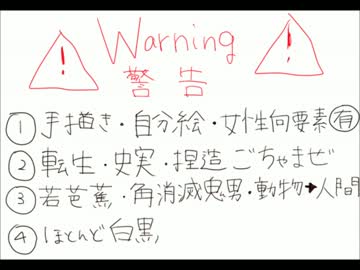 Warning
警告
① 手描き・自分絵・女性向要素有
② 転生・史実・捏造ごちゃまぜ
③ 若芭蕉・角消滅鬼男・動物→人間
④ ほとんど白黒